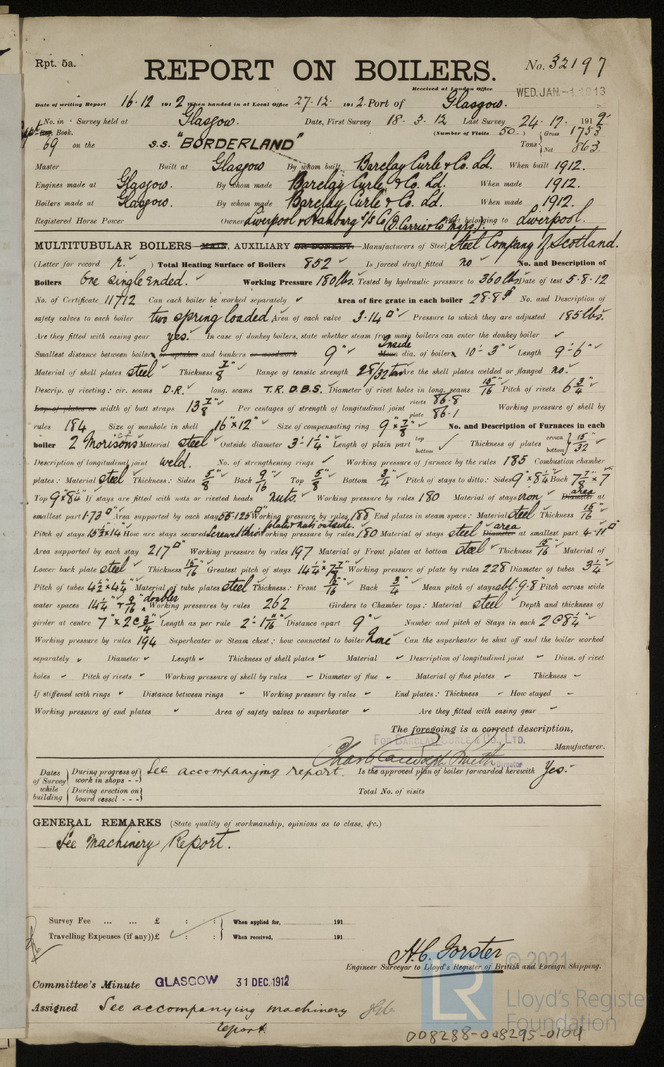 Rpt. 5a.
REPORT ON BOILERS.
No. 32197
Received at London Office WED. JAN -1 1913
Date of writing Report 16.12 1912 When handed in at Local Office 27.12. 1912. Port of Glasgow.
No. in Survey held at Glasgow. Date, First Survey 18.3.12 Last Survey 24.12. 1912
Reg. Book. (Number of Visits 50.) Gross 1733
69 on the S.S. "BORDERLAND" Tons Net 863
Master Built at Glasgow By whom built Barclay Curle & Co. Ld. When built 1912.
Engines made at Glasgow. By whom made Barclay Curle & Co. Ld. When made 1912.
Boilers made at Glasgow. By whom made Barclay Curle & Co. Ld. When made 1912.
Registered Horse Power Owners Liverpool & Hamburg S/S Co (D. Currie & Co Mgrs). Port belonging to Liverpool.
MULTITUBULAR BOILERS MAIN, AUXILIARY OR DONKEY. Manufacturers of Steel Steel Company of Scotland.
(Letter for record r.) Total Heating Surface of Boilers 852 Is forced draft fitted no No. and Description of
Boilers One single Ended. Working Pressure 180 lbs. Tested by hydraulic pressure to 360 lbs Date of test 5.8.12
No. of Certificate 11712 Can each boiler be worked separately Area of fire grate in each boiler 28.8 No. and Description of
safety valves to each boiler two spring loaded Area of each valve 3.14 Pressure to which they are adjusted 185 lbs
Are they fitted with easing gear yes. In case of donkey boilers, state whether steam from main boilers can enter the donkey boiler
Smallest distance between boilers or uptakes and bunkers or woodwork 9" Inside Mean dia. of boilers 10'-3" Length 9'-6"
Material of shell plates steel Thickness 7/8 Range of tensile strength 28/32 tons Are the shell plates welded or flanged no.
Descrip. of riveting: cir. seams D.R. long. seams T.R.D.B.S. Diameter of rivet holes in long. seams 15/16 Pitch of rivets 6 3/4
Lap of plates or width of butt straps 13 7/8 Per centages of strength of longitudinal joint rivets 86.8 plate 86.1 Working pressure of shell by
rules 184 Size of manhole in shell 16" x 12" Size of compensating ring 9" x 7/8" No. and Description of Furnaces in each
boiler 2 Morisons Material steel Outside diameter 3'-1 1/4" Length of plain part top bottom Thickness of plates crown bottom 15/32
Description of longitudinal joint weld. No. of strengthening rings Working pressure of furnace by the rules 185 Combustion chamber
plates: Material steel Thickness: Sides 5/8 Back 9/16 Top 5/8 Bottom 3/4 Pitch of stays to ditto: Sides 9" x 8 1/4 Back 7 7/8 x 7
Top 9 x 8 1/4 If stays are fitted with nuts or riveted heads nuts. Working pressure by rules 180 Material of stays iron Diameter area at
smallest part 1.73 Area supported by each stay 55.125 Working pressure by rules 188 End plates in steam space: Material steel Thickness 15/16
Pitch of stays 15 1/2 x 14 How are stays secured Screwed thro plate & nuts outside. Working pressure by rules 180 Material of stays steel Diameter area at smallest part 4.11
Area supported by each stay 217 Working pressure by rules 197 Material of Front plates at bottom steel Thickness 15/16 Material of
Lower back plate steel Thickness 15/16 Greatest pitch of stays 14 1/4 x 7 3/4 Working pressure of plate by rules 228 Diameter of tubes 3 1/4"
Pitch of tubes 4 1/2 x 4 1/4 Material of tube plates steel Thickness: Front 15/16 Back 3/4 Mean pitch of stays abt. 9.8 Pitch across wide
water spaces 14 1/4 + 9/16 doubler Working pressures by rules 262 Girders to Chamber tops: Material steel Depth and thickness of
girder at centre 7" x 2 @ 3/4 Length as per rule 2'-1 7/16" Distance apart 9" Number and pitch of Stays in each 2 @ 8 1/4"
Working pressure by rules 194 Superheater or Steam chest; how connected to boiler None Can the superheater be shut off and the boiler worked
separately Diameter Length Thickness of shell plates Material Description of longitudinal joint Diam. of rivet
holes Pitch of rivets Working pressure of shell by rules Diameter of flue Material of flue plates Thickness
If stiffened with rings Distance between rings Working pressure by rules End plates: Thickness How stayed
Working pressure of end plates Area of safety valves to superheater Are they fitted with easing gear
The foregoing is a correct description,
FOR BARCLAY CURLE & CO., LTD.
Manufacturer.
Director
Dates of Survey while building During progress of work in shops - - See accompanying report. Is the approved plan of boiler forwarded herewith Yes.
During erection on board vessel - - - Total No. of visits
GENERAL REMARKS (State quality of workmanship, opinions as to class, &c.)
See Machinery Report.
Survey Fee ... ... £ : : When applied for, 191
Travelling Expenses (if any) £ : : When received, 191
A.C. Forster
Engineer Surveyor to Lloyd's Register of British and Foreign Shipping.
Committee's Minute GLASGOW 31 DEC. 1912
Assigned See accompanying machinery
report.
LR
© 2021
Lloyd's Register
Foundation
008288-008295-0104